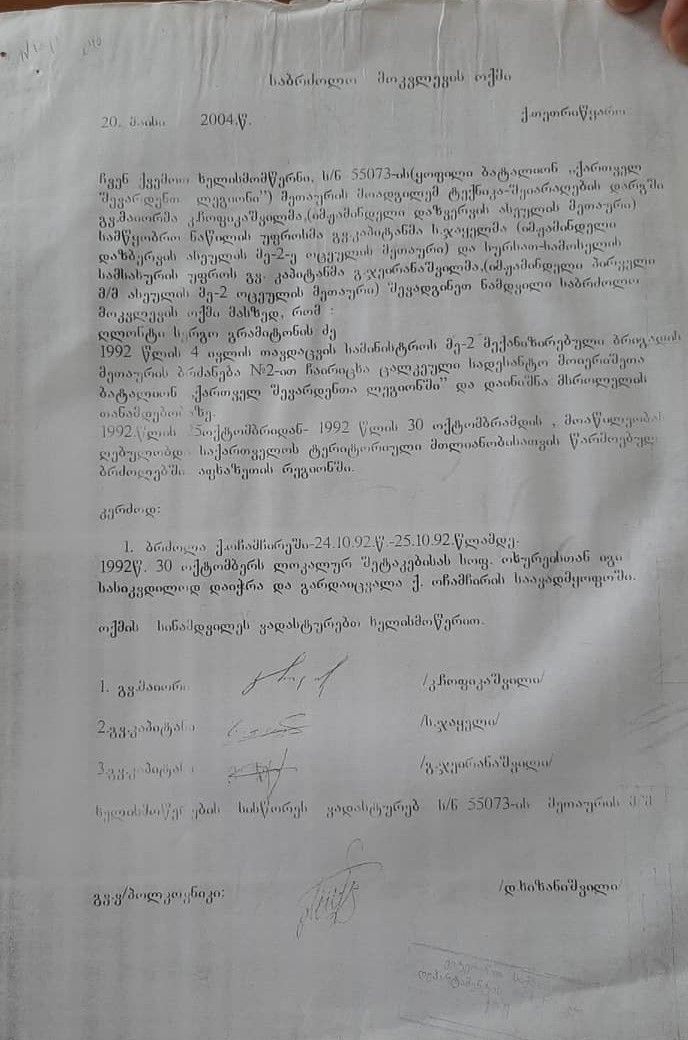 საბრძოლო მოკვლევის ოქმი
20. მაისი 2004.წ. ქ.თეთრიწყარო
ჩვენ ქვემოთ ხელისმომწერნი, ს/ნ 55073-ის(ყოფილი ბატალიონ „ქართველ
შევარდენთა ლეგიონი”) მეთაურის მოადგილემ ტექნიკა-შეიარაღების დარგში
გვ.მაიორმა კ.ჩოფიკაშვილმა,(იმ.ჟამინდელი დაზვერვის ასეულის მეთაური)
სამწყობრო ნაწილის უფროსმა გვ.კაპიტანმა ს.ჯაყელმა (იმ.ჟამინდელი
დაზვერვის ასეულის მე-2-ე ოცეულის მეთაური) და სურსათ-სამოსელის
სამსახურის უფროს გვ. კაპიტანმა გ.ჯეირანაშვილმა,(იმ.ჟამინდელი პირველი
მ/მ ასეულის მე-2 ოცეულის მეთაური) შევადგინეთ ნამდვილი საბრძოლო
მოკვლევის ოქმი მასზედ, რომ :
ღლონტი სერგო გრამიტონის ძე
1992 წლის 4 ივლის თავდაცვის სამინისტროს მე-2 მექანიზირებული ბრიგადის
მეთაურის ბრძანება №2-ით ჩაირიცხა ცალკეული სადესანტო მოიერიშეთა
ბატალიონ „ქართველ შევარდენთა ლეგიონში” და დაინიშნა მსროლელის
თანამდებობაზე.
1992.წლის 5ოქტომბრიდან- 1992 წლის 30 ოქტომბრამდის , მოაწილეობას
ღებულობდა საქართველოს ტერიტორიული მთლიანობისათვის წარმოებულ
ბრძოლებში აფხაზეთის რეგიონში.
კერძოდ:
1. ბრძოლა ქ.ოჩამჩირეში-24.10.92.წ.-25.10.92.წლამდე.
1992წ. 30 ოქტომბერს ლოკალურ შეტაკებისას სოფ. ოხურეისთან იგი
სასიკვდილოდ დაიჭრა და გარდაიცვალა ქ. ოჩამჩირის საავადმყოფოში.
ოქმის სინამდვილეს ვადასტურებთ ხელისმოწერით.
1. გვ.მაიორი /კ.ჩოფიკაშვილი/
2.გვ.კაპიტანი /ს.ჯაყელი/
3.გვ.კაპიტანი /გ.ჯეირანაშვილი/
ხელისმოწერების სისწორეს ვადასტურებ ს/ნ 55073-ის მეთაურის მ/შ
გვ.ვ/პოლკოვნიკი: /დ.ხიზანიშვილი/